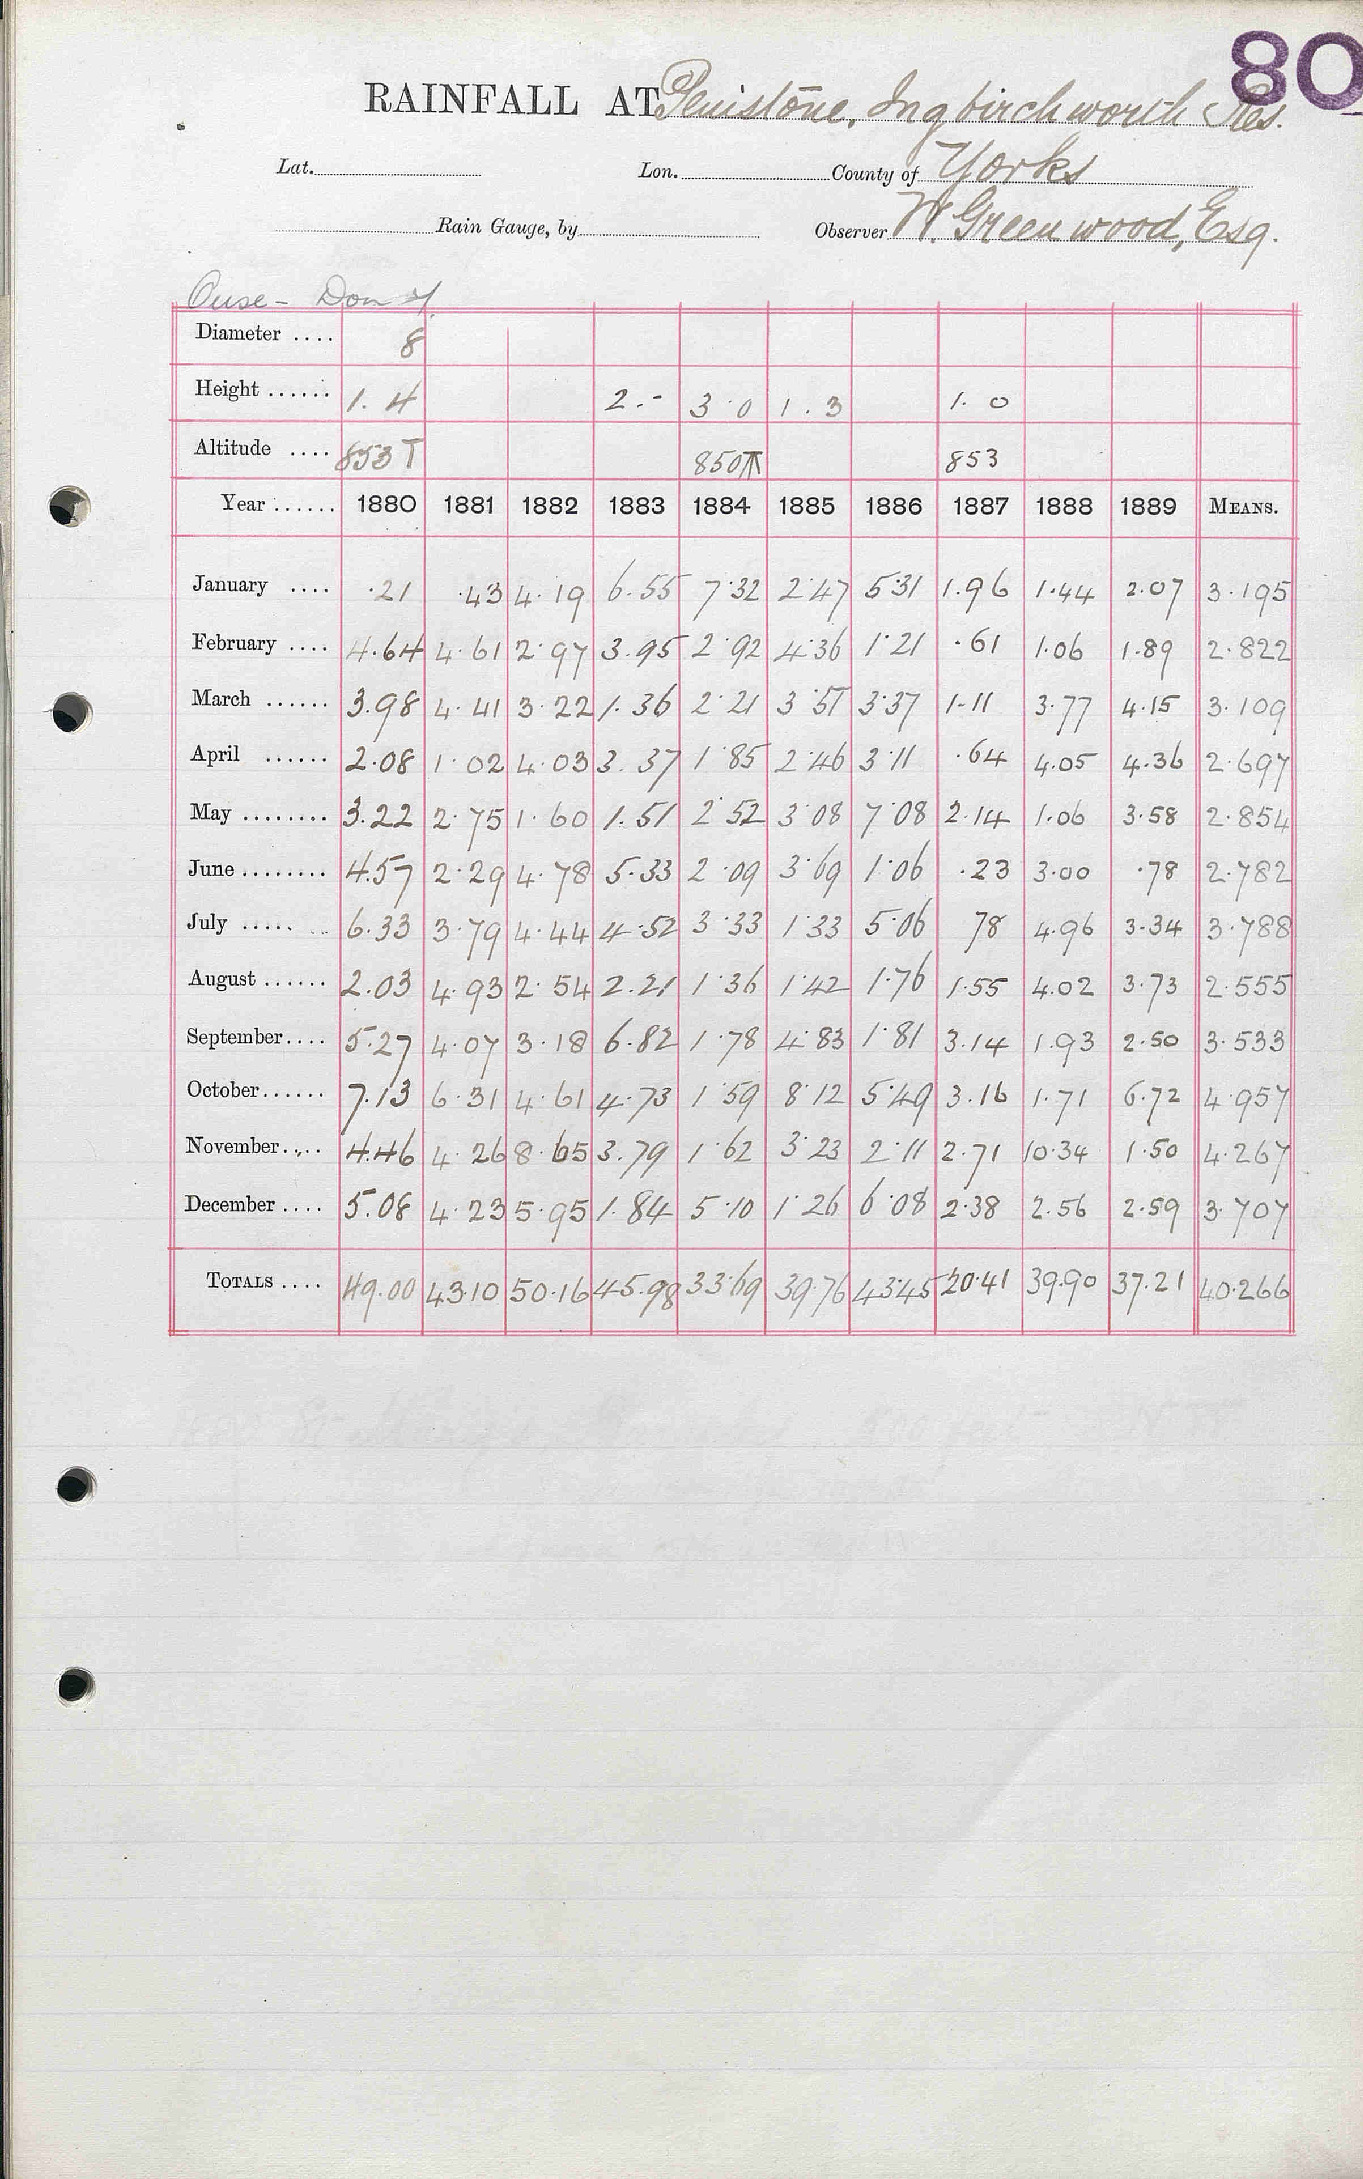 80
RAINFALL AT Penistone, Ingbirchworth Res.
Lat. Lon. County of Yorks
Rain Gauge, by Observer W. Greenwood, Esq.
Ouse - Don
Diameter .... 8
Height ...... 1.4 2.- 3.0 1.3 1.0
Altitude .... 853 T 850 T 853
Year ...... 1880 1881 1882 1883 1884 1885 1886 1887 1888 1889 MEANS.
January .... .21 .43 4.19 6.55 7.32 2.47 5.31 1.96 1.44 2.07 3.195
February .... 4.64 4.61 2.97 3.95 2.92 4.36 1.21 .61 1.06 1.89 2.822
March ...... 3.98 4.41 3.22 1.36 2.21 3.51 3.37 1.11 3.77 4.15 3.109
April ...... 2.08 1.02 4.03 3.37 1.85 2.46 3.11 .64 4.05 4.36 2.697
May ........ 3.22 2.75 1.60 1.51 2.52 3.08 7.08 2.14 1.06 3.58 2.854
June ........ 4.57 2.29 4.78 5.33 2.09 3.69 1.06 .23 3.00 .78 2.782
July ..... 6.33 3.79 4.44 4.52 3.33 1.33 5.06 78 4.96 3.34 3.788
August ...... 2.03 4.93 2.54 2.21 1.36 1.42 1.76 1.55 4.02 3.73 2.555
September.... 5.27 4.07 3.18 6.82 1.78 4.83 1.81 3.14 1.93 2.50 3.533
October...... 7.13 6.31 4.61 4.73 1.59 8.12 5.49 3.16 1.71 6.72 4.957
November.... 4.46 4.26 8.65 3.79 1.62 3.23 2.11 2.71 10.34 1.50 4.267
December .... 5.08 4.23 5.95 1.84 5.10 1.26 6.08 2.38 2.56 2.59 3.707
TOTALS .... 49.00 43.10 50.16 45.98 33.69 39.76 43.45 20.41 39.90 37.21 40.266